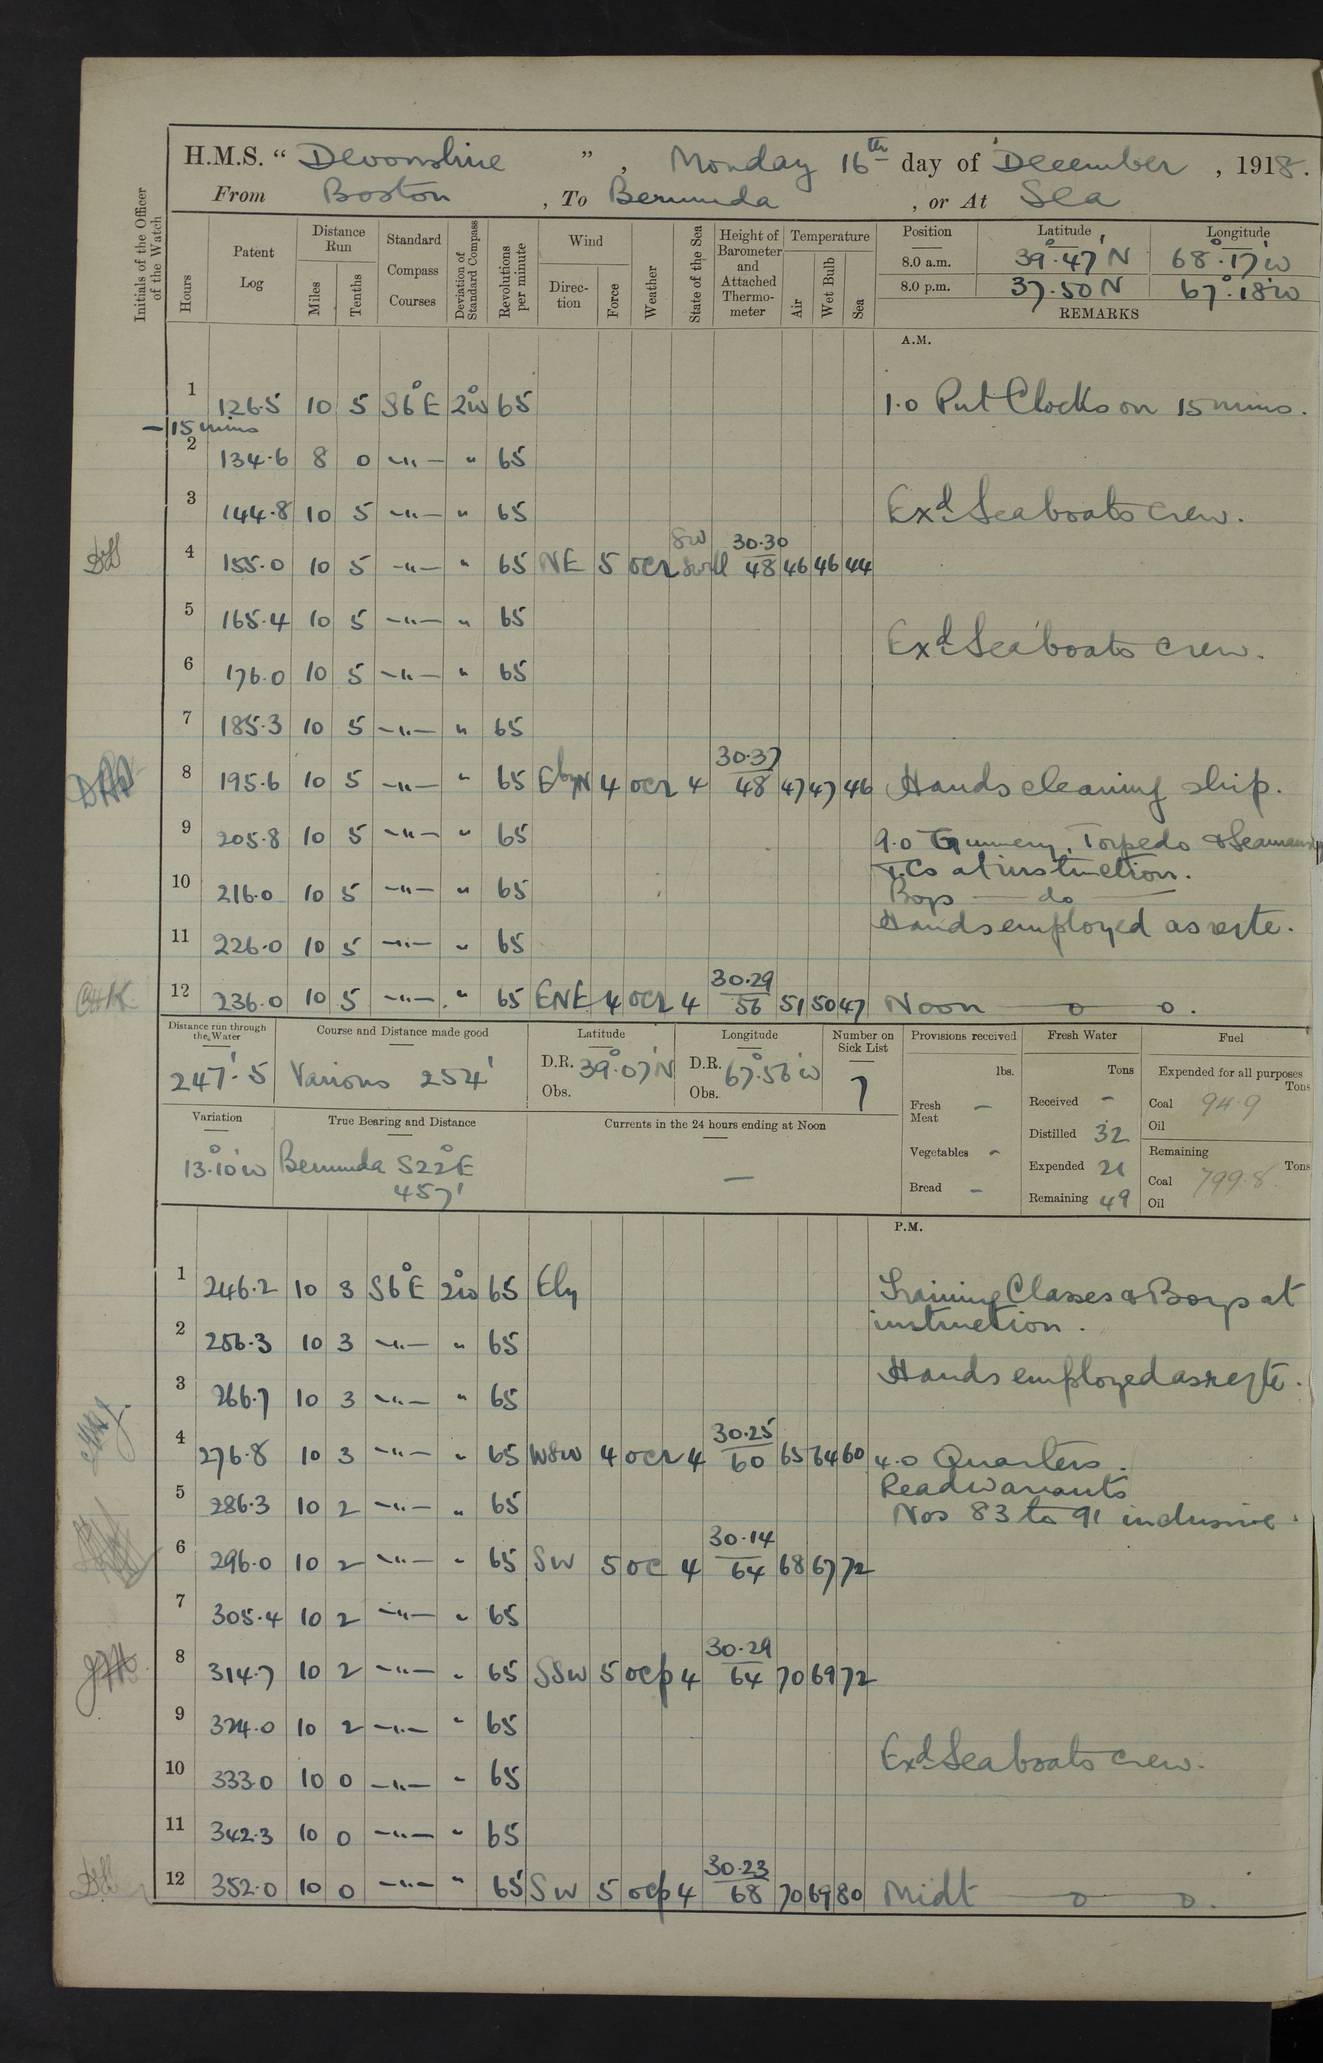 H.M.S. “ Devonshire ” , Monday 16th day of December , 1918.
From Boston , To Bermuda , or At Sea
Initials of the Officer of the Watch
Hours
Patent Log
Distance Run
Miles
Tenths
Standard Compass Courses
Deviation of Standard Compass
Revolutions per minute
Wind
Direction
Force
Weather
State of the Sea
Height of Barometer and Attached Thermometer
Temperature
Air
Wet Bulb
Sea
Position Latitude Longitude
8.0 a.m. 39°.47' N 68°.17' W
8.0 p.m. 37.50 N 67°.18' W
REMARKS
A.M.
1 126.5 10 5 S6°E 2°W 65 1.0 Put Clocks on 15 mins.
- 15 mins
2 134.6 8 0 -"- " 65
3 144.8 10 5 -"- " 65 Exd Seaboats crew.
4 155.0 10 5 -"- " 65 NE 5 ocr SW Swell 30.30 48 46 46 44
5 165.4 10 5 -"- " 65
Exd Seaboats crew.
6 176.0 10 5 -"- " 65
7 185.3 10 5 -"- " 65
8 195.6 10 5 -"- " 65 EbyN 4 ocr 4 30.37 48 47 47 46 Hands cleaning ship.
9 205.8 10 5 -"- " 65 9.0 Gunnery, Torpedo & Seamanship
T.Cs at instruction.
10 216.0 10 5 -"- " 65 Boys — do —
Hands employed as reqte.
11 226.0 10 5 -"- " 65
12 236.0 10 5 -"- " 65 ENE 4 ocr 4 30.29 56 51 50 47 Noon — o — o.
Distance run through the Water
247'.5
Course and Distance made good
Various 254'
Latitude
D.R. 39°.07'N
Obs.
Longitude
D.R. 67°.56'W
Obs.
Number on Sick List
7
Provisions received
lbs.
Fresh Meat -
Vegetables -
Bread -
Fresh Water
Tons
Received -
Distilled 32
Expended 21
Remaining 49
Fuel
Expended for all purposes
Tons
Coal 94.9
Oil
Remaining
Tons
Coal 799.8
Oil
Variation
13°.10'W
True Bearing and Distance
Bermuda S22°E
457'
Currents in the 24 hours ending at Noon
—
P.M.
1 246.2 10 3 S6°E 2°W 65 Ely Training Classes & Boys at
instruction.
2 256.3 10 3 -"- " 65
Hands employed as reqte.
3 266.7 10 3 -"- " 65
4 276.8 10 3 -"- " 65 WSW 4 ocr 4 30.25 60 65 64 60 4.0 Quarters.
Read Warrants
5 286.3 10 2 -"- " 65 Nos 83 to 91 inclusive.
6 296.0 10 2 -"- " 65 SW 5 oc 4 30.14 64 68 67 72
7 305.4 10 2 -"- " 65
8 314.7 10 2 -"- " 65 SSW 5 ocp 4 30.29 64 70 69 72
9 324.0 10 2 -"- " 65
Exd Seaboats crew.
10 333.0 10 0 -"- " 65
11 342.3 10 0 -"- " 65
12 352.0 10 0 -"- " 65 SW 5 ocp 4 30.23 68 70 69 80 Midt — o — o.